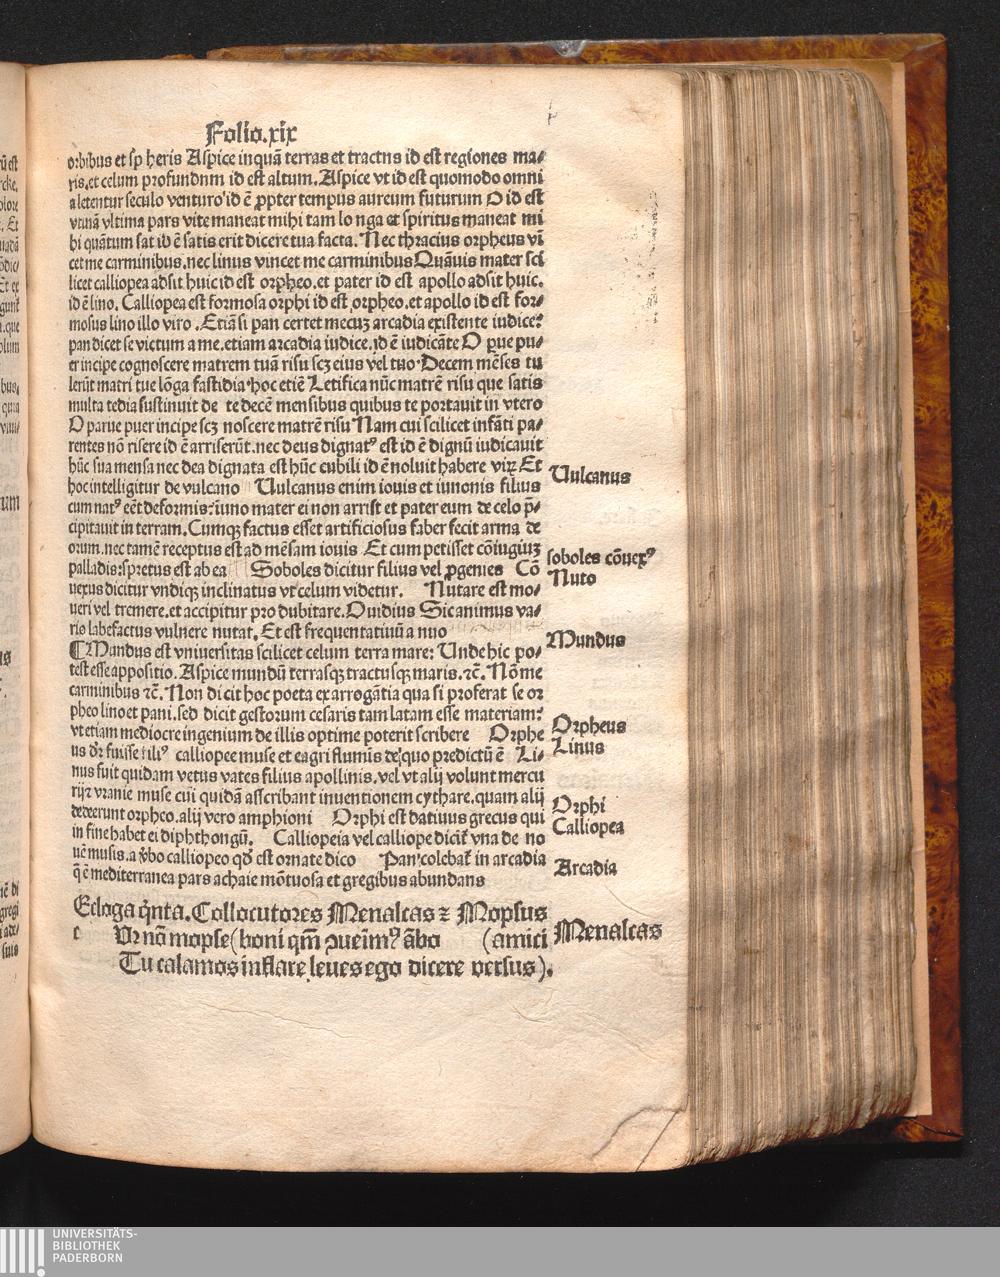 Folio.xix
orbibus et sp heris Aspice inquā terras et tractns id est regiones ma⸗
ris.et celum profundnm id est altum.Aspice vt id est quomodo omni
a letentur seculo venturo id ē ꝓpter tempus aureum futurum O id est
vtinā vltima pars vite maneat mihi tam lo nga et spiritus maneat mi
hi quātum sat id ē satis erit dicere tua facta. Nec thracius orpheus vī
cet me carminibus.nec linus vincet me carminibus Quāuis mater sci
licet calliopea adsit huic id est orpheo.et pater id est apollo adsit huic.
id ē lino. Calliopea est formosa orphi id est orpheo.et apollo id est for⸗
mosus lino illo viro .Etiā si pan certet mecuꝫ arcadia existente iudice:
pan dicet se victum a me.etiam arcadia iudice.id ē iudicāte O parue pu⸗
er incipe cognoscere matrem tuā risu scꝫ eius vel tuo Decem mēses tu
lerūt matri tue lōga fastidia hoc etiē Letifica nūc matrē risu que satis
multa tedia sustinuit de te decē mensibus quibus te portauit in vtero
O parue puer incipe scꝫ noscere matrē risu Nam cui scilicet infāti pa⸗
rentes nō risere id ē arriserūt.nec deus dignatꝰ est id ē dignū iudicauit
hūc sua mensa nec dea dignata est hūc cubili id ē noluit habere virꝫ Et
hoc intelligitur de vulcano Uulcanus enim iouis et iunonis filius
cum natꝰ eēt deformis: iuno mater ei non arrisit et pater eum de celo p̄⸗
cipitauit in terram. Cumqꝫ factus esset artificiosus faber fecit arma de
orum.nec tamē receptus est ad mēsam iouis Et cum petisset cōiugiuꝫ
palladis: spretus est ab ea Soboles dicitur filius vel ꝓgenies Cō
uexus dicitur vndiqꝫ inclinatus vt celum videtur. Nutare est mo⸗
ueri vel tremere.et accipitur pro dubitare. Ouidius Sic animus va⸗
rio labefactus vulnere nutat. Et est frequentatiuū a nuo
¶ Mandus est vniuersitas scilicet celum terra mare: Unde hic po⸗
test esse appositio. Aspice mundū terrasqꝫ tractusqꝫ maris. ⁊c. Nō me
carminibus ⁊c. Non di cit hoc poeta ex arrogātia qua si proferat se or
pheo lino et pani.sed dicit gestorum cesaris tam latam esse materiam:
vt etiam mediocre ingenium de illis optime poterit scribere Orphe
us dr̄ fuisse filiꝰ calliopee muse et eagri flumīs de quo predictū ē Li⸗
nus fuit quidam vetus vates filius apollinis.vel vt alij volunt mercu
rij ⁊ vranie muse cui quidā asscribant inuentionem cythare.quam alij
dederunt orpheo.alij vero amphioni Orphi est datiuus grecus qui
in fine habet ei diphthongū. Calliopeia vel calliope dicit̄ vna de no
uē musis.a v̄bo calliopeo qd̄ est ornate dico Pan colebat̄ in arcadia
q̄ ē mediterranea pars achaie mōtuosa et gregibus abundans
Ecloga q̄nta. Collocutores Menalcas ⁊ Mopsus
c Ur nō mopse (boni qm̄ ꝯuenīmꝰ ābo (amici
Tu calamos inflare leues ego dicere versus).
Uulcanus
soboles cōuexꝰ
Nuto
Mundus
Orpheus
Linus
Orphi
Calliopea
Arcadia
Menalcas
UNIVERSITÄTS-
BIBLIOTHEK
PADERBORN